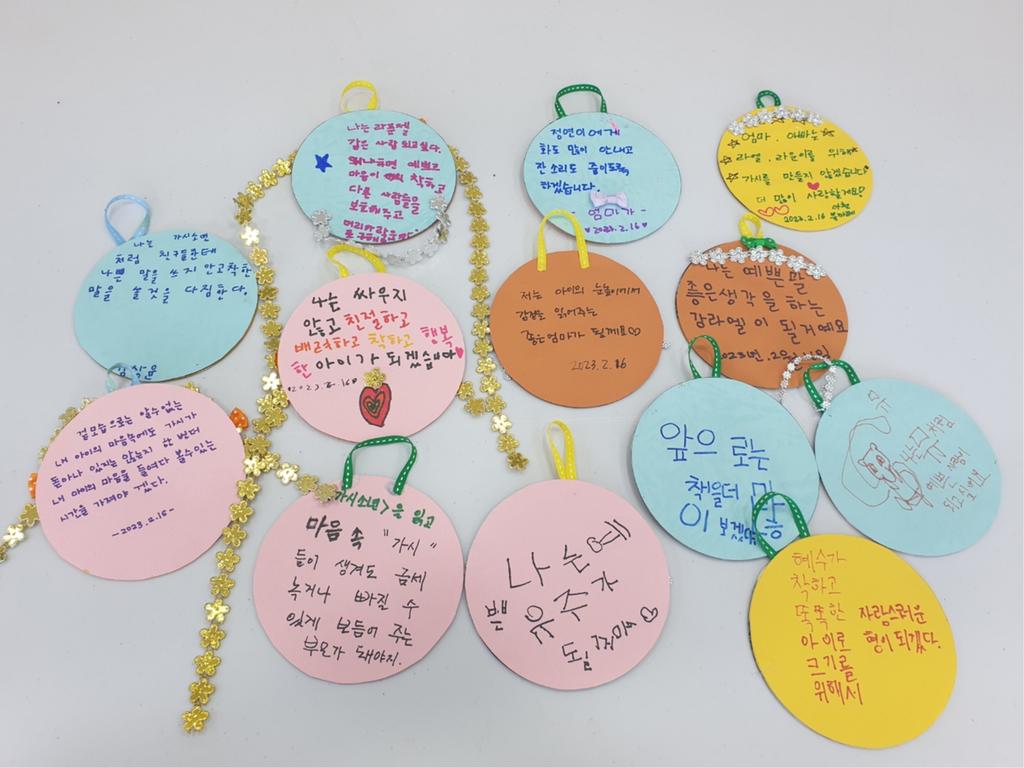 나는 라푼젤
같은 사람 되고싶다.
왜냐하면 예쁘고
마음이 착하고
다른 사람들을
보호해주고
정연이에게
화도 많이 안내고
잔소리도 줄이도록
하겠습니다.
- 엄마가 -
2023.2.16
엄마, 아빠는
라엘, 라윤이를 위해
가시를 만들지 않겠습니다
더 많이 사랑할게요
2023.2.16
나는 가시소년
처럼 친구들한테
나쁜 말을 쓰지 안고착한
말을 쓸것을 다짐한다.
나는 싸우지
않고 친절하고
배려하고 착하고 행복
한 아이가 되겠습니다
2023.2.16
저는 아이의 눈높이에서
감정을 읽어주는
좋은엄마가 될게요
2023.2.16
나는 예쁜말
좋은생각을 하는
감라엘이 될거예요
겉모습으로는 알수없는
내 아이의 마음속에도 가시가
돋아나 있지는 않는지 한 번더
내 아이의 마음을 들여다 볼수있는
시간을 가져야 겠다.
-2023.2.16-
가시소년>을 읽고
마음 속 "가시"
들이 생겨도 금세
녹거나 빠질 수
있게 보듬어 주는
부모가 돼야지.
나는 예
쁜 유주가
될꺼야
앞으로는
책을더 많
이 보겠
되고싶어요
혜수가
착하고
똑똑한 자랑스러운
아이로 형이되겠다.
크기를
위해서